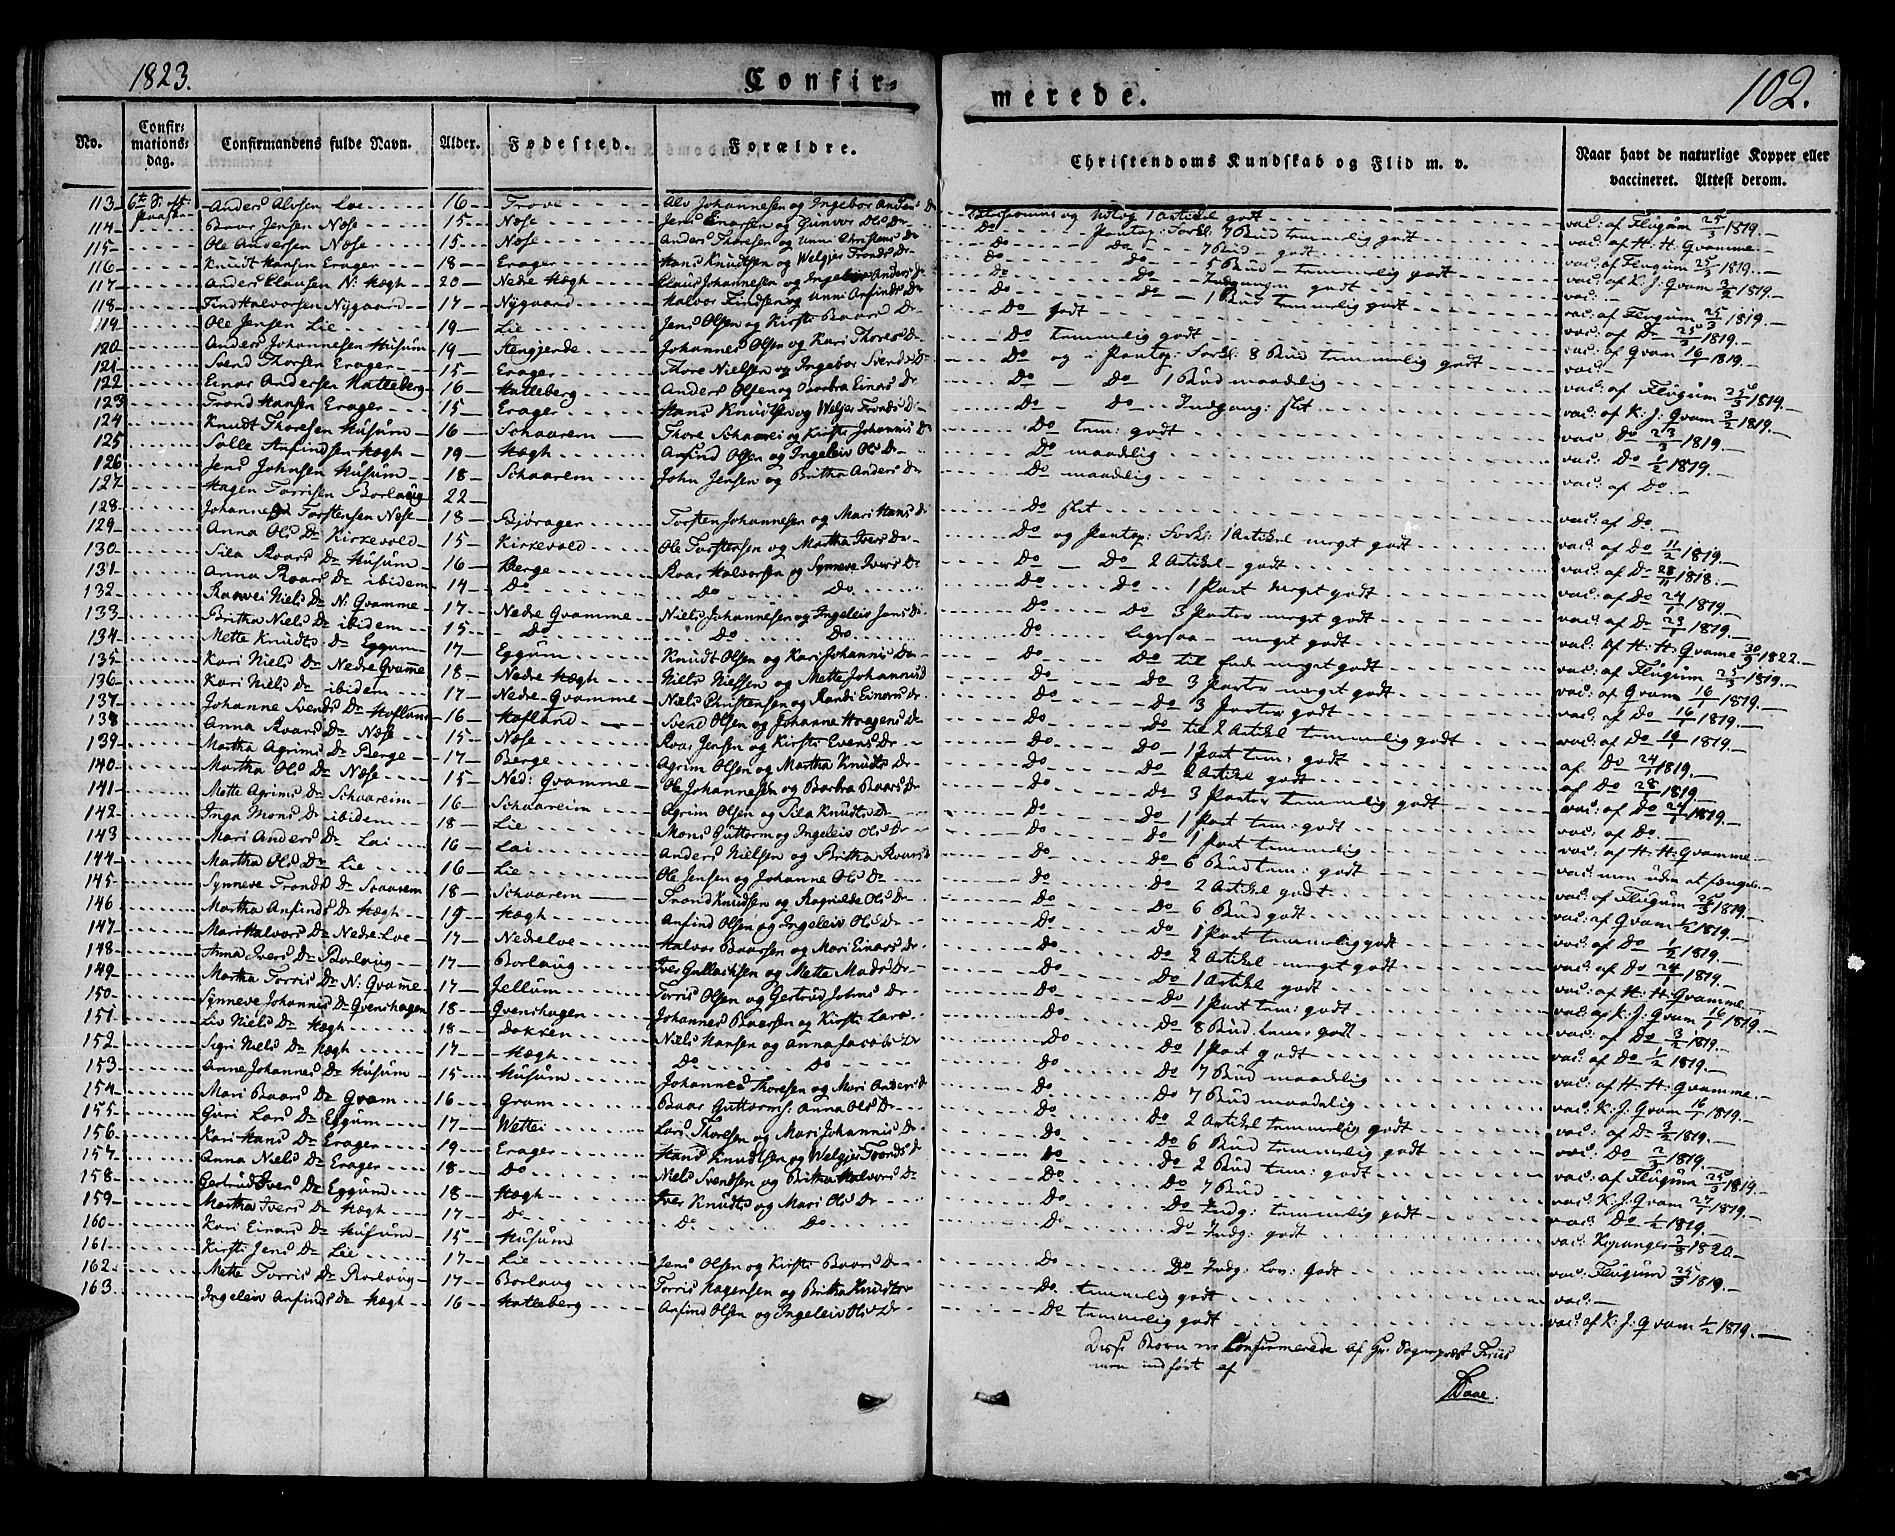 1823.
Confir-
merede.
102.
No.
Confir-
mations-
dag.
Confirmandens fulde Navn.
Alder.
Fødested.
Forældre.
Christendoms Kundskab og Flid m. v.
Naar havt de naturlige Kopper eller
vaccineret. Attest derom.
113 Anders Alvsen Loe 16 Trove Alv Johannesen og Ingebor Anders Dr 1 Artikel godt vac: af Flugum 25/3 1819.
114 Baar Jensen Nose 15 Nose Jens Einarsen og Gunvor Ols Dr Do 7 Bud temmelig godt vac: af H. H. Qvamme
115 Ole Andersen Nose 15 Nose Anders Thoresen og Unni Christens Dr Do Do 7 Bud godt vac: af Flugum 25/3 1819.
116 Knudt Hansen Erager 18 Erager Hans Knudtsen og Welgjer Tronds Dr Do Do 5 Bud temmelig godt vac: af K. J. Qvam 3/2 1819.
117 Anders Clausen N: Hægh 20 Nedre Hægh Claus Johannesen og Ingeleiv Anders Dr Do Do godt vac:
118 Find Halvorsen Nygaard 17 Nygaard Halvor Findsen og Unni Anfinds Dr Do Do 1 Bud temmelig godt vac: af Flugum 25/3 1819.
119 Ole Jensen Lie 19 Lie Jens Olsen og Kirsti Baars Dr Do godt vac: af Do 25/3 1819.
120 Anders Johannesen Husum 19 Stengjerde Johannes Olsen og Kari Thores Dr Do temmelig godt vac: af Qvam 16/1 1819.
121 Svend Thorsen Erager 15 Erager Thore Nielsen og Ingebor Svends Dr Do og i Pontop: Forkl: 8 Bud temmelig godt vac:
122 Einar Andersen Hatleberg 16 Hatleberg Anders Olsen og Barbra Einars Dr Do Do 1 Bud maadelig vac: af Flugum 25/3 1819.
123 Trond Hansen Erager 15 Erager Hans Knudtsen og Welgjer Tronds Dr Do Do Indgang: slet vac: af K: J: Qvam 3/2 1819.
124 Knudt Thoresen Husum 16 Schaarem Thore Schaarei og Kirsti Johannis Dr Do tem: godt vac: Do 23/3 1819.
125 Salle Anfindsen Hægh 19 Hægh Anfind Olsen og Ingeleiv Ols Dr Do maadelig vac: Do 1/2 1819.
126 Jens Johnsen Husum 18 Schaarem John Jensen og Britha Anders Dr Do maadelig vac: af Do.
127 Hagen Torrisen Borlaug 22
128 Johannes Torstensen Nose 18 Bjørager Torsten Johannesen og Mari Hans Dr Do slet vac: af Do.
129 Anna Ols Dr Kirkevold 15 Kirkevold Ole Torstensen og Martha Ivers Dr Do og Pontop: Forkl: 1 Artikel meget godt vac: af Do 11/2 1819.
130 Sila Roars Dr Husum 16 Berge Roar Halvorsen og Synneve Ivers Dr Do Do 2 Artikel godt vac: af Do 28/11 1818.
131 Anna Roars Dr ibidem 14 Do Do Do Do Do 1 Part meget godt vac: af Do 24/1 1819.
132 Niels Dr N: Qvamme 17 Nedre Qvamme Niels Johannesen og Ingeleiv Jens Dr Do Do 3 Parter meget godt vac: af Do 23/1 1819.
133 Britha Niels Dr ibidem 15 Do Do Do Do ligesaa meget godt vac: af H: H: Qvame 30/9 1822.
134 Mette Knudts Dr Eggum 17 Eggum Knudt Olsen og Kari Johannis Dr Do Do til Ende meget godt vac: af Flugum 25/3 1819.
135 Kari Niels Dr Nedre Qvamme 18 Nedre Hægh Niels Nielsen og Mette Johannis D Do Do 3 Parter meget godt vac: af Qvam 16/1 1819.
136 Kari Niels Dr ibidem 17 Nedre Qvamme Niels Christensen og Randi Einars Dr Do Do 3 Parter godt vac: af Do 16/1 1819.
137 Johanne Svends Dr Hofland 16 Hofland Svend Olsen og Johanne Haagens Dr Do Do til 2 Artikel temmelig godt vac: af Do 16/1 1819.
138 Anna Roars Dr Nose 15 Nose Roar Jensen og Kirsti Evens Dr Do Do 1 Part tem: godt af Do 24/1 1819.
139 Martha Agrims Dr Berge 17 Berge Agrim Olsen og Martha Knudts Dr Do Do 2 Artikel godt af Do 28/ 1819
140 Martha Ols Dr Nose 15 Ned: Qvamme Ole Johannesen og Barbra Baars Dr Do Do 3 Parter temmelig godt vac: af Do 24/1 1819.
141 Mette Agrims Dr Schaareim 16 Schaareim Agrim Olsen og Sila Knudts Dr Do Do 1 Part tem: godt vac: af Do.
142 Inga Mons Dr ibidem 18 Lie Mons Guttorm og Ingeleiv Ols Dr Do Do 1 Part temmelig vac: af H: H: Qvamme
143 Mari Anders Dr Lai 16 Lai Anders Nielsen og Britha Roars D Do Do 6 Bud tem: godt vac: men uden at fænge
144 Martha Ols Dr Lie 16 Lie Ole Jensen og Johanne Ols Dr Do Do 2 Artikel godt vac: af Flugum 25/3 1819.
145 Synneve Tronds Dr Scaarem 18 Schaarem Trond Knudsen og Ragnilde Ols Dr Do Do 6 Bud godt vac: af Qvam 1/2 1819.
146 Martha Anfinds Dr Hægh 19 Hægh Anfind Olsen og Ingeleiv Ols Dr Do Do 1 Part temmelig godt vac: af Do 1/2 1819.
147 Mari Halvors Dr Nedre Loe 17 Nedre Loe Halvor Baarsen og Mari Einars Dr Do Do 2 Artikel meget godt vac: af Do 24/1 1819.
148 Anna Ivers Dr Borlaug 17 Borlaug Iver Gullachsen og Mette Mads Dr Do Do 1 Artikel godt vac: af H: H: Qvamme
149 Martha Torris Dr N: Qvame 17 Jellum Torris Olsen og Gertrud Johns Dr Do Do 1 Part tem: godt vac: af K: J: Qvam 16/1 1819.
150 Synneve Johannis Dr Qvenshagen 18 Qvenshagen Johannes Baarsen og Kirsti Lars Do Do 8 Bud tem: godt vac: af Do 3/2 1819.
151 Liv Niels Dr Hægh 18 Dokken Niels Hansen og Anna Jacobs Dr Do Do 1 Part godt vac: af Do 1/2 1819.
152 Sigri Niels Dr Hægh 17 Hægh Do Do Do Do 7 Bud maadelig vac: af H: H: Qvamme.
153 Anne Johannes Dr Husum 15 Husum Johannes Thoresen og Mari Anders Dr Do Do 7 Bud maadelig vac: K. J. Qvam 16/1 1819.
154 Mari Baars Dr Qvam 16 Gram Baar Guttorms. Anna Ols Dr Do Do 2 Artikel temmelig godt vac: af Do 3/2 1819.
155 Guri Lars Dr Eggum 17 Wettei Lars Thoresen og Mari Johannis Dr Do Do 6 Bud temmelig godt vac: Do 1819.
156 Kari Hans Dr Erager 19 Erager Hans Knudtsen og Welgjer Tronds Dr Do Do 2 Bud tem: godt vac: af Flugum 25/3 1819.
157 Anna Niels Dr Erager 18 Do Niels Svendsen og Britha Halvors Dr Do Do 7 Bud vac: K. J. Qvam 1819.
158 Gertrud Ivers Dr Eggum 18 Hægh Iver Knudts og Mari Ols Dr Do Do Indg: temmelig godt vac: Do 1/2 1819.
159 Martha Ivers Dr Hægh 17 Do Do Do Do Do Indg: godt vac: Kopanger 3/3 1820
160 Kari Einars Dr Husum 15 Husum
161 Kirsti Jens Dr Lie 17 Lie Jens Olsen og Kirsti Baars Dr Do Do Indg: Lov: godt vac: Flugum 25/3 1819.
162 Mette Torris Dr Borlaug 17 Borlaug Torris Hagensen og Britha Knudts Do temmelig godt vac:
163 Ingeleiv Anfinds Dr Hægh 16 Hatleberg Anfind Olsen og Ingeleiv Ols Dr Do temmelig godt vac: af K: J: Qvam 1/2 1819.
Disse Børn er Confirmerede af Hr. Sognepræst Friis
men indført af
Daae.